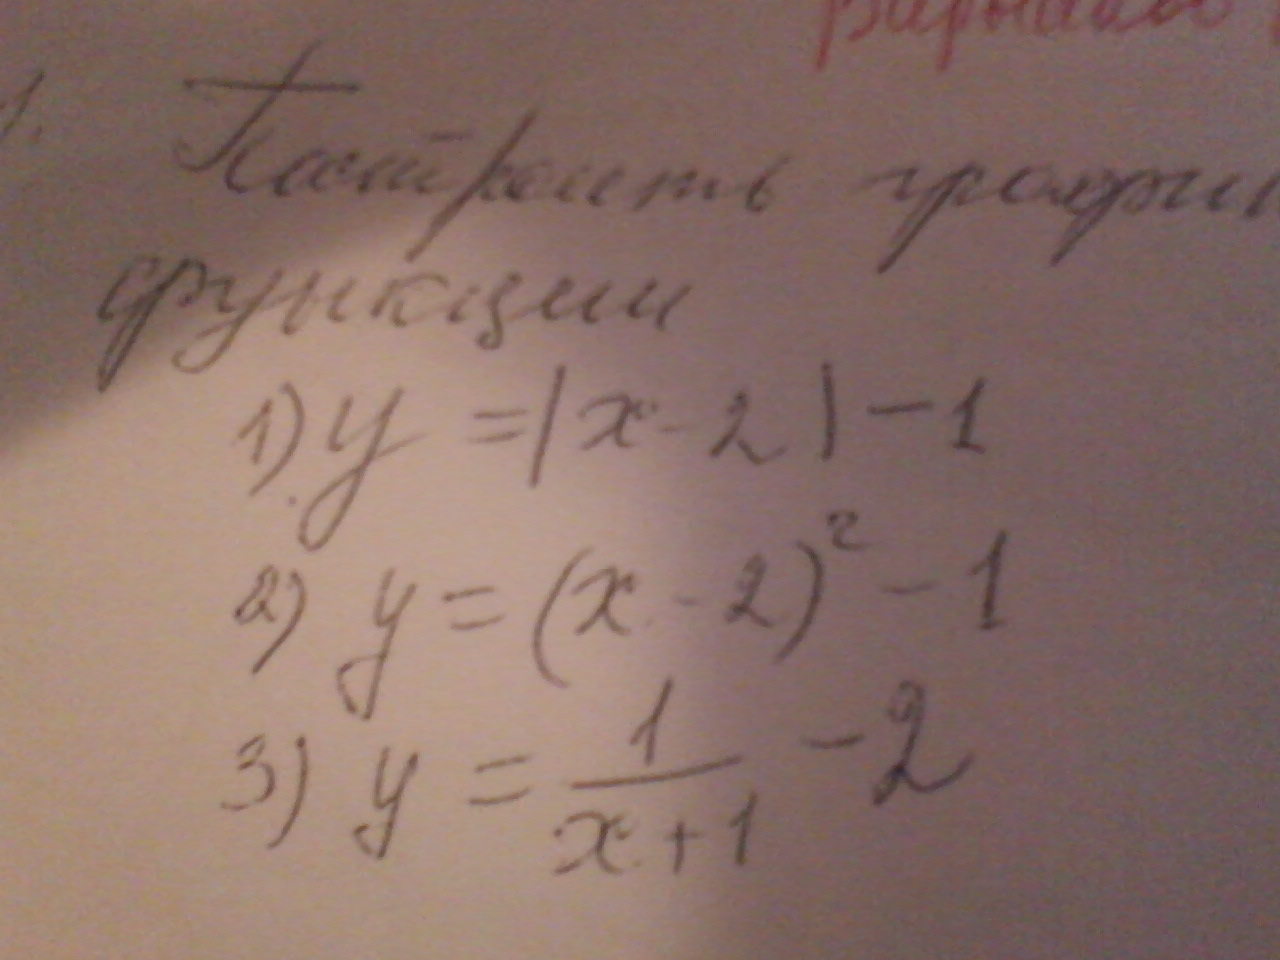 Вариант
1. Построить график
функции
1) y = |x - 2| - 1
2) y = (x - 2)² - 1
3) y = 1/(x + 1) - 2